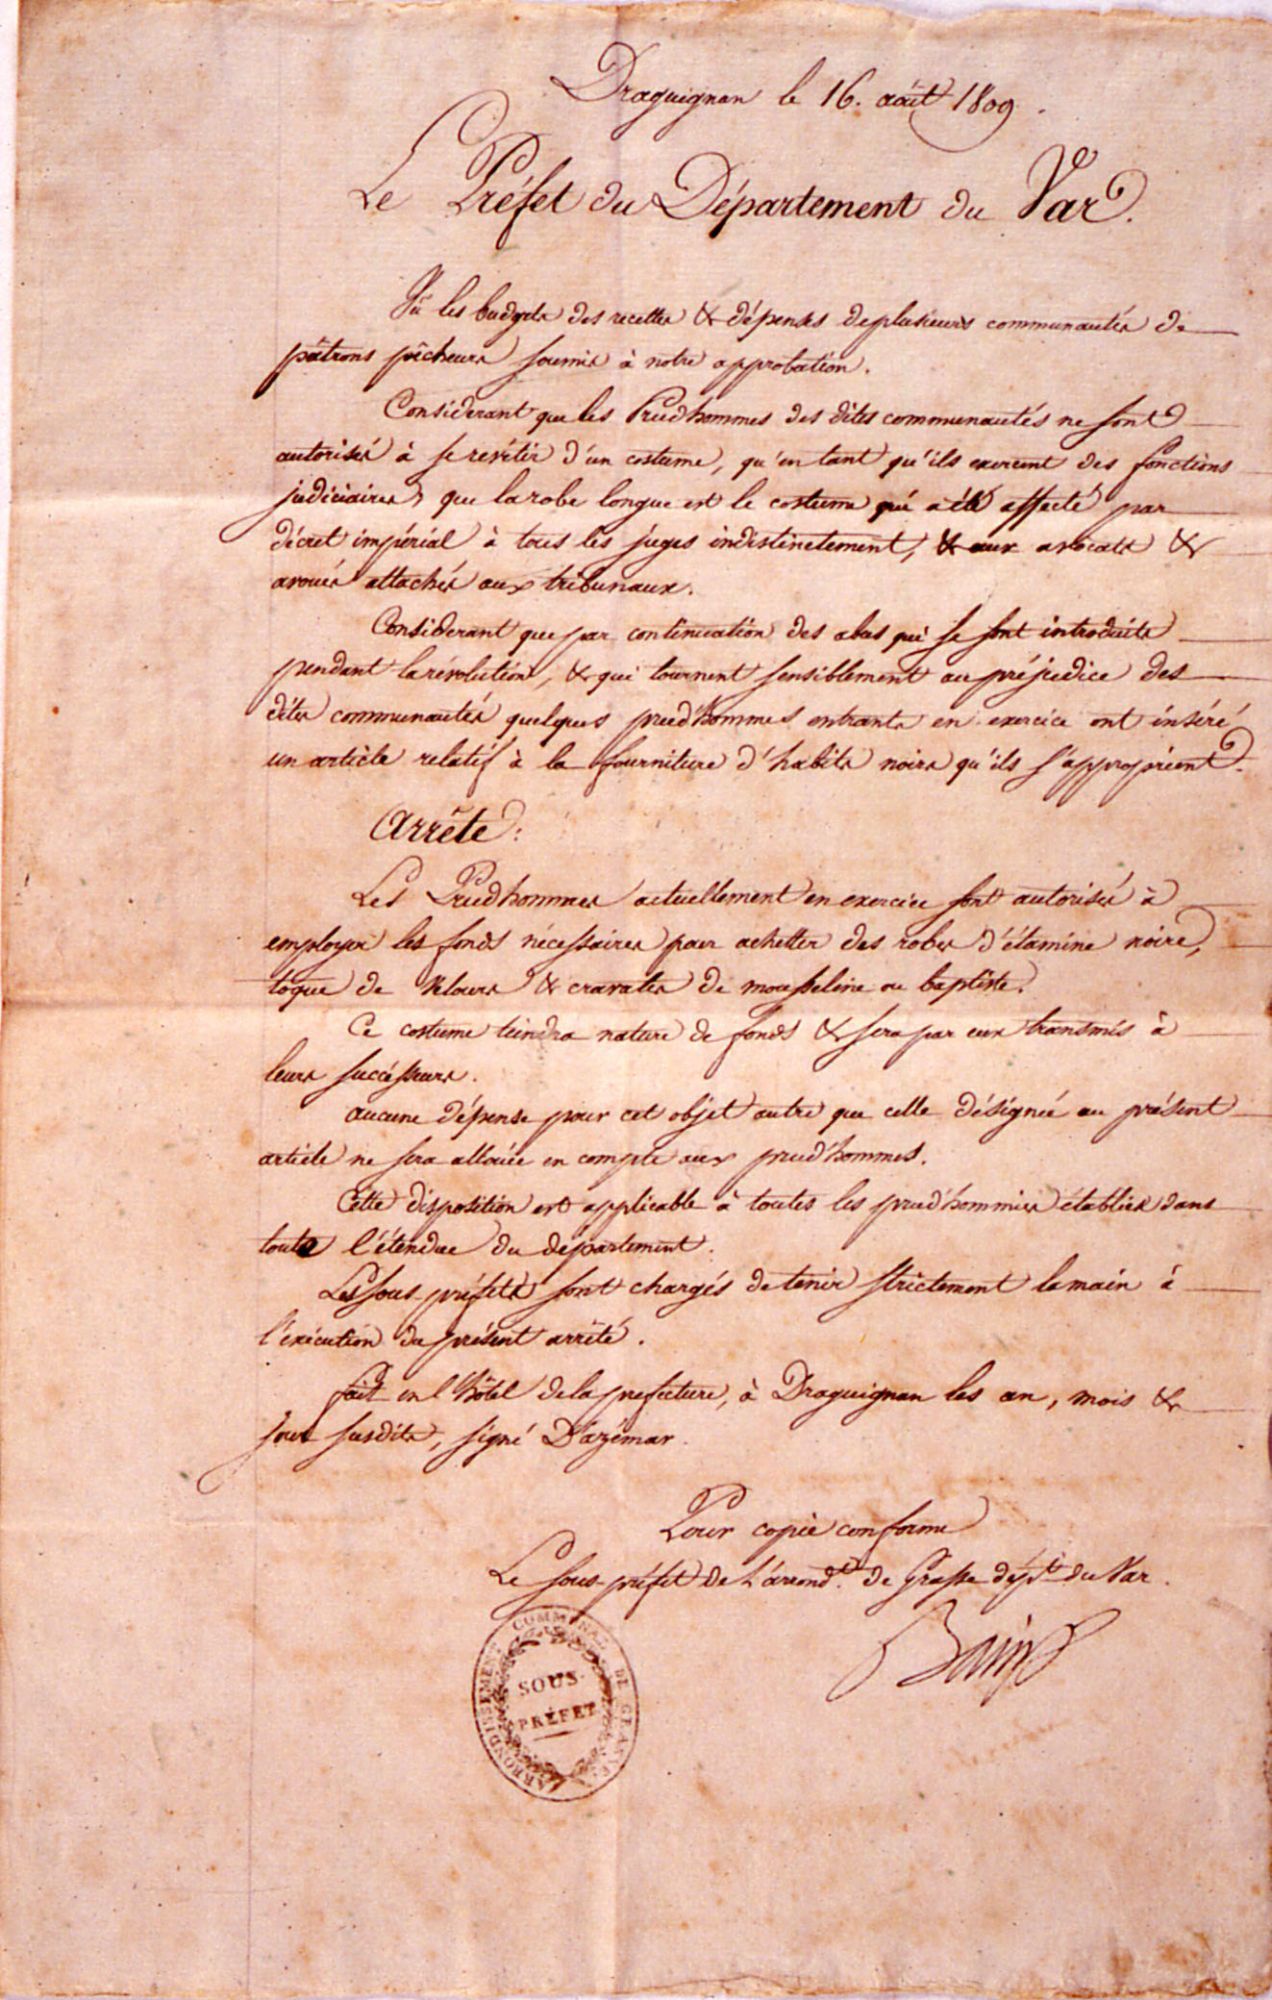 Draguignan le 16. août 1809.
Le Préfet du Département du Var.
Vû les budgets des recettes & dépenses de plusieurs communautés de
pâtrons pêcheurs soumis à notre approbation.
Considerant que les Prud'hommes des dites communautés ne sont
autorisés à se revêtir d'un costume, qu'en tant qu'ils exercent des fonctions
judiciaires, que la robe longue est le costume qui a été affecté par
décret impérial à tous les juges indistinctement, & aux avocats &
avoués attachés aux tribunaux.
Considerant que par continuation des abus qui se sont introduits
pendant la révolution, & qui tournent sensiblement au préjudice des
dites communautés quelques prud'hommes entrants en exercice ont inséré
un article relatif à la fourniture d'habits noirs qu'ils s'approprient.
Arrête:
Les Prud'hommes actuellement en exercice sont autorisés à
employer les fonds nécessaires pour achetter des robes d'étamine noire,
toque de velours & cravates de mousseline ou baptiste.
Ce costume tiendra nature de fonds & sera par eux transmis à
leurs succésseurs.
aucune dépense pour cet objet autre que celle désignée au présent
article ne sera allouée en compte aux prud'hommes.
Cette disposition est applicable à toutes les prud'hommies établies dans
toute l'étendue du département.
Les sous-préfets sont chargés de tenir strictement la main à
l'exécution du présent arrêté.
fait en l'hôtel de la prefecture, à Draguignan les an, mois &
jour susdits, signé D'azémar.
Pour copie conforme
Le sous-préfet de L'arrond.t de Grasse dép.t du Var.
Bain
ARRONDISSEMENT COMMUNAL DE GRASSE.
SOUS-
PRÉFET